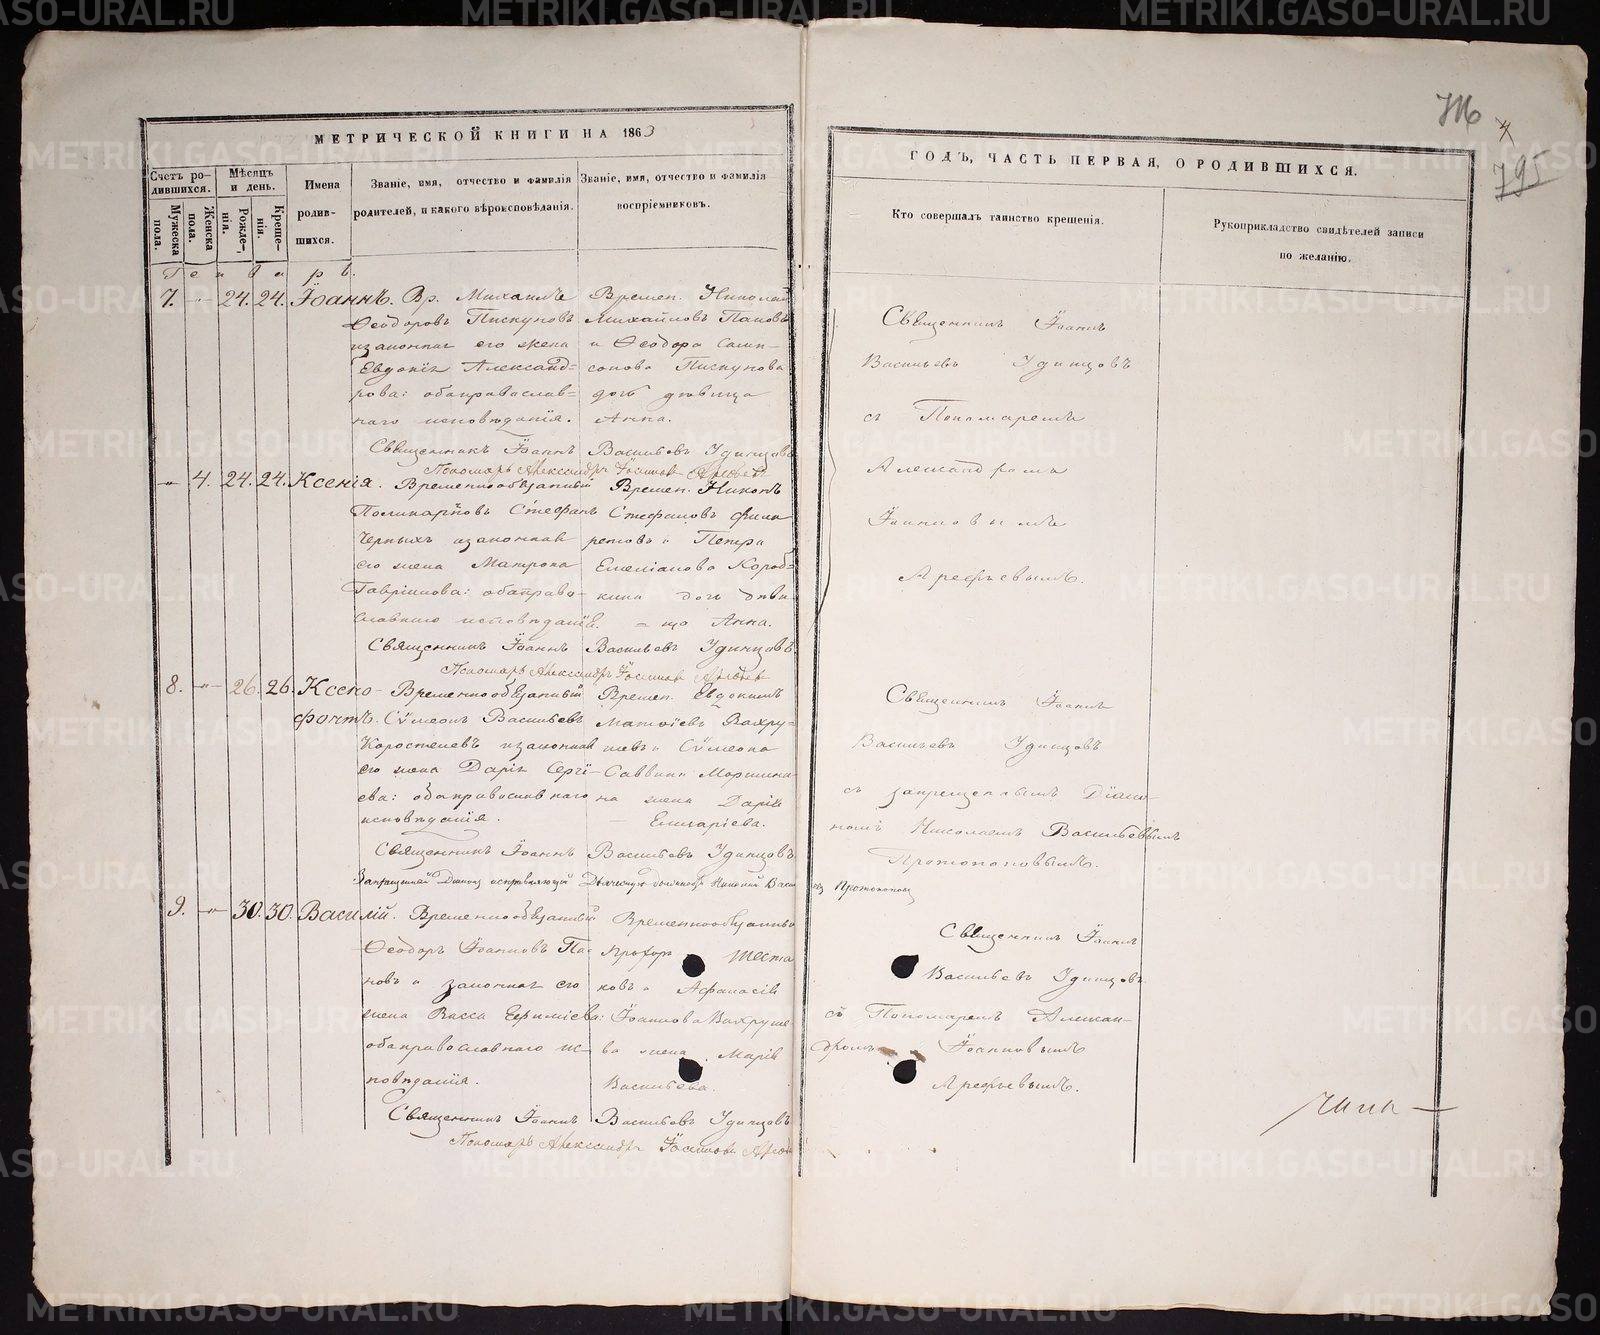 МЕТРИЧЕСКОЙ КНИГИ НА 1863
ГОДЪ, ЧАСТЬ ПЕРВАЯ, О РОДИВШИХСЯ.
4
795
Счетъ ро-
дившихся.
Мужеска
пола.
Женска
пола.
Мѣсяцъ
и день.
Рожде-
нія.
Креще-
нія.
Имена
родив-
шихся.
Званіе, имя, отчество и фамилія
родителей, и какого вѣроисповѣданія.
Званіе, имя, отчество и фамилія
воспріемниковъ.
Кто совершалъ таинство крещенія.
Рукоприкладство свидѣтелей записи
по желанію.
Генварь.
7. -"- 24. 24. Іоаннъ.
Вр. Михаилъ
Ѳеодоровъ Пискуновъ
изаконная его жена
Евдокія Александ=
рова: обаправослав=
наго исповѣданія.
Времен. Николай
Михайловъ Пановъ
и Ѳеодора Самп-
сонова Пискунова
дочь дѣвица
Анна.
Священникъ Іоаннъ
Васильевъ Удинцовъ
съ Пономаремъ
Александромъ
Іоанновымъ
Арефьевымъ.
Священникъ Іоаннъ Васильевъ Удинцовъ
Пономарь Александръ Іоанновъ Арефьевъ
-"- 4. 24. 24. Ксенія.
Временнообязанный
Поликарповъ Стефанъ
Черныхъ изаконная
его жена Матрона
Гавріилова: обаправо-
славнаго исповѣданія.
Времен. Никонъ
Стефановъ Фила
ретовъ и Петра
Емеліанова Короб=
кина дочь дѣви
= ца Анна.
Священникъ Іоаннъ Васильевъ Удинцовъ.
Пономарь Александръ Іоанновъ Арефьевъ
8. -"- 26. 26. Ксено-
фонтъ.
Временнообязанный
Сѵмеонъ Васильевъ
Коростелевъ изаконная
его жена Дарія Сергі-
ева: обаправославнаго
исповѣданія.
Времен. Евдокимъ
Матѳіевъ Вахру-
шевъ и Сѵмеона
Саввина
на жена Дарія
Елизаріева.
Священникъ Іоаннъ
Васильевъ Удинцовъ
съ запрещеннымъ Діако-
номъ Николаемъ Васильевымъ
Протопоповымъ.
Священникъ Іоаннъ Васильевъ Удинцовъ
Запрещенный Діаконъ исправляющій Дьяческую должность Николай Васильевъ Протопоповъ
9. -"- 30. 30. Василій.
Временнообязанный
Ѳеодоръ Іоанновъ Па-
новъ и законная его
жена Васса Ефиміева:
обаправославнаго ис-
повѣданія.
Временнообязанный
Прохоръ Шеста
ковъ и Афанасія
Іоаннова Вахруше
ва жена Марія
Васильева.
Священникъ Іоаннъ
Васильевъ Удинцовъ
съ Пономаремъ Алексан-
дромъ Іоанновымъ
Арефьевымъ.
Священникъ Іоаннъ Васильевъ Удинцовъ
Пономарь Александръ Іоанновъ Арефьевъ
METRIKI.GASO-URAL.RU